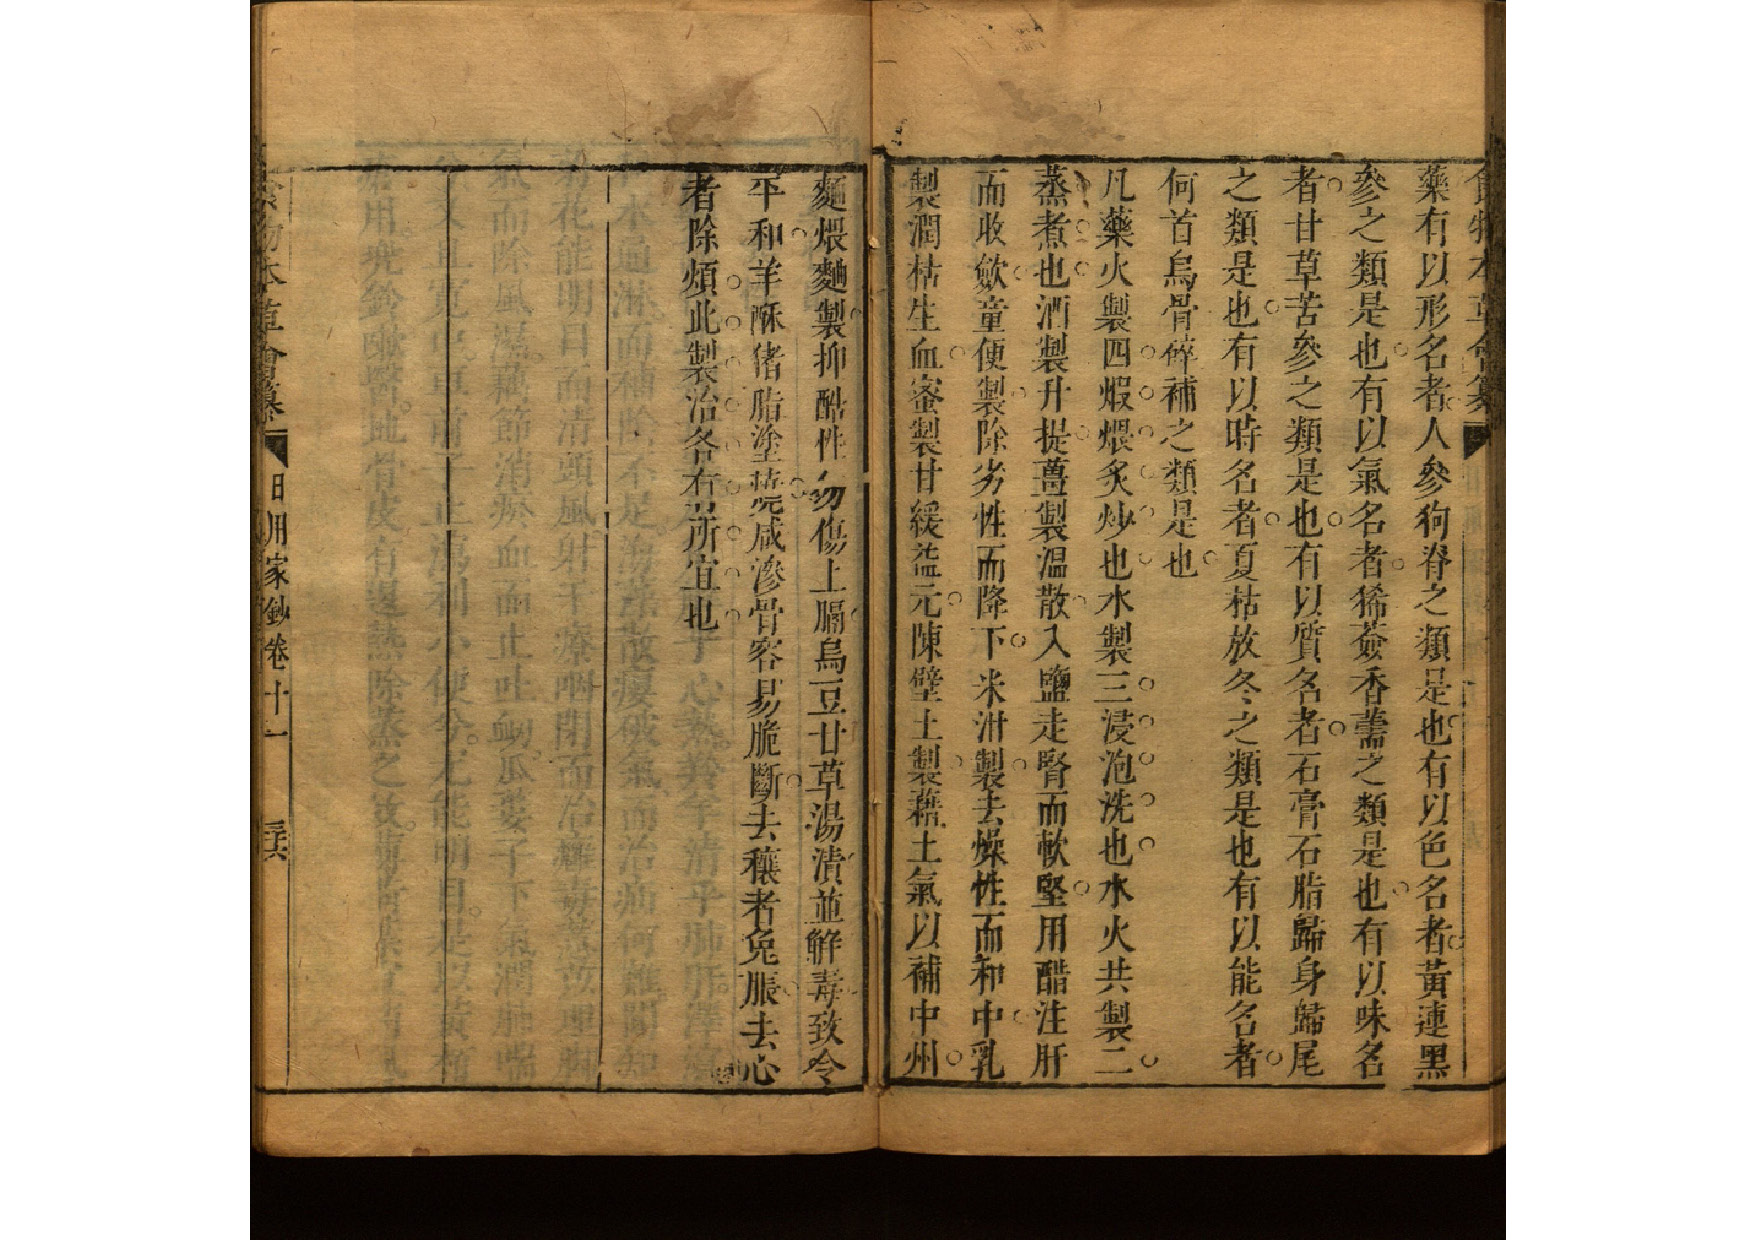 食物本草會纂
藥有以形名者人參狗脊之類是也有以色名者黃連黑
參之類是也有以氣名者豨薟香薷之類是也有以味名
者甘草苦參之類是也有以質名者石膏石脂歸身歸尾
之類是也有以時名者夏枯放冬之類是也有以能名者
何首烏骨碎補之類是也
凡藥火製四煆煨炙炒也水製三浸泡洗也水火共製二
蒸煮也酒製升提薑製溫散入鹽走腎而軟堅用醋注肝
而收歛童便製除劣性而降下米泔製去燥性而和中乳
製潤枯生血蜜製甘緩益元陳壁土製藉土氣以補中州
麵煨麯製抑酷性勿傷上膈烏豆甘草湯漬並觧毒致令
平和羊酥猪脂塗燒咸滲骨容易脆斷去穰者免脹去心
者除煩此製治各有所宜也
食物本草會纂 日用家鈔卷十一